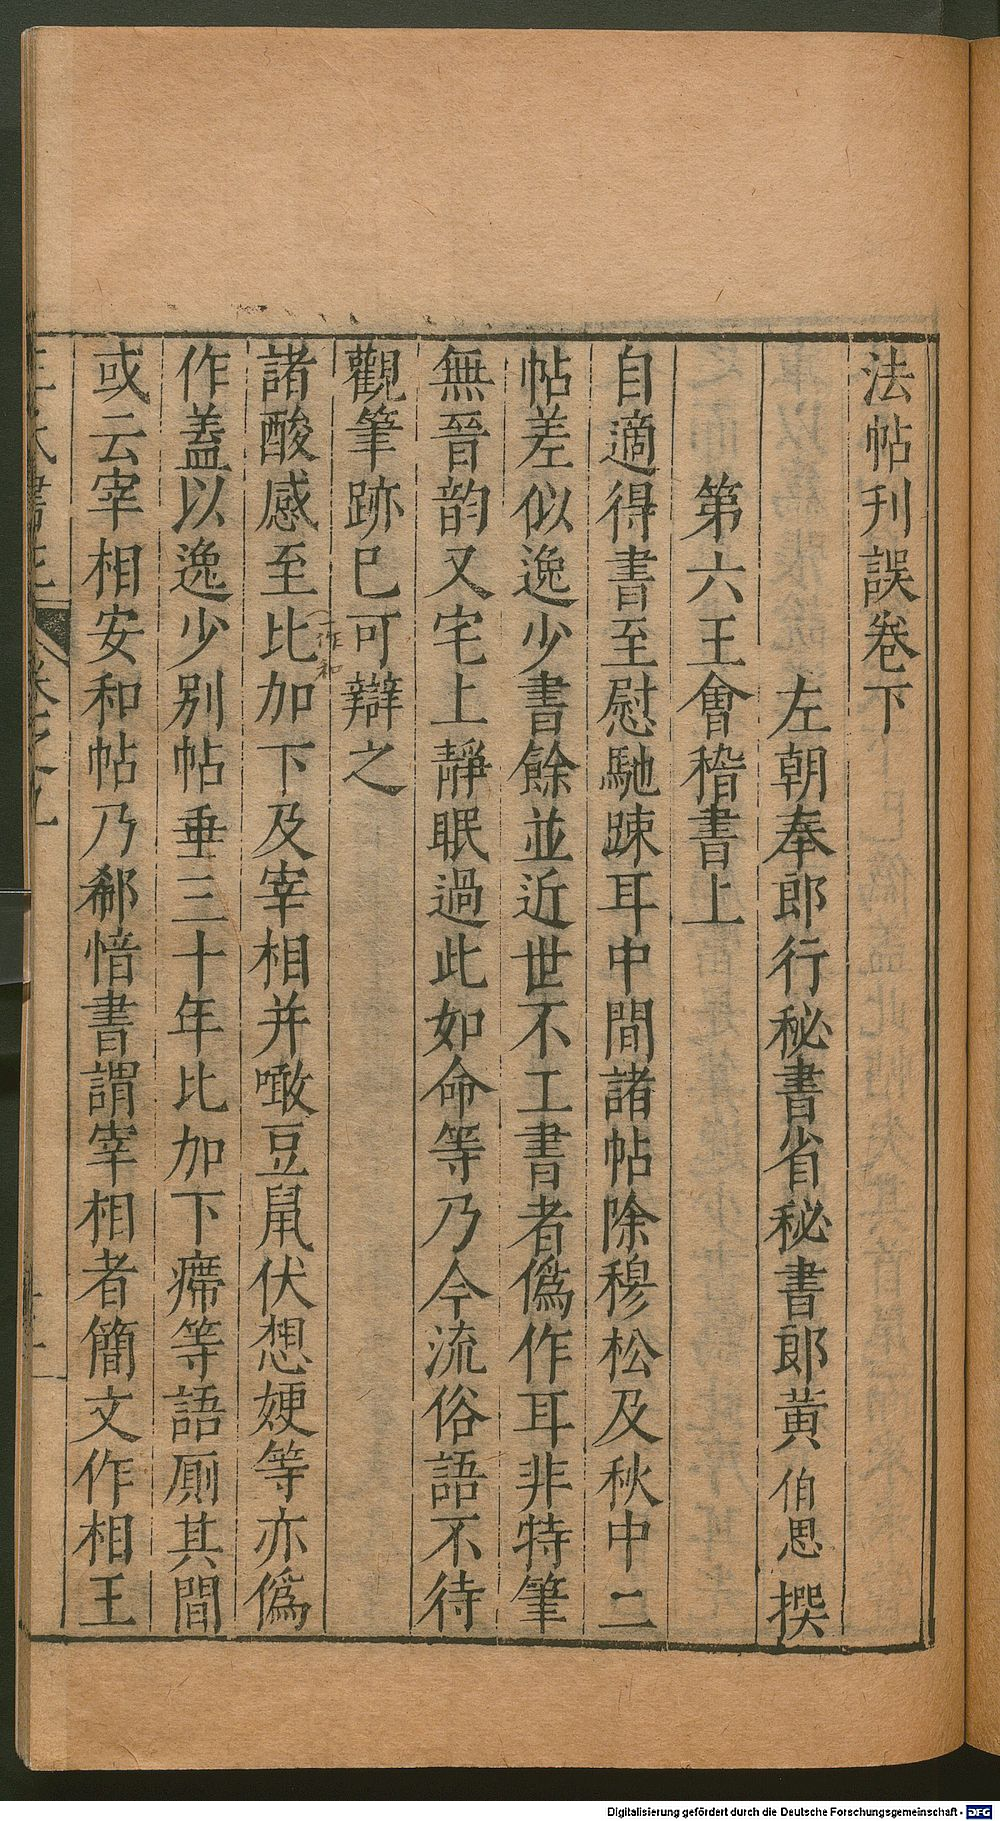 法帖刊誤卷下
左朝奉郎行秘書省秘書郎黃伯思撰
第六王會稽書上
自適得書至慰馳踈耳中間諸帖除穆松及秋中二
帖差似逸少書餘並近世不工書者偽作耳非特筆
無晉韵又宅上靜眠過此如命等乃今流俗語不待
觀筆跡巳可辯之
一作和
諸酸感至比加下及宰相并噉豆鼠伏想嫂等亦偽
作蓋以逸少别帖垂三十年比加下㿃等語廁其間
或云宰相安和帖乃郗愔書謂宰相者簡文作相王
Digitalisierung gefördert durch die Deutsche Forschungsgemeinschaft - DFG